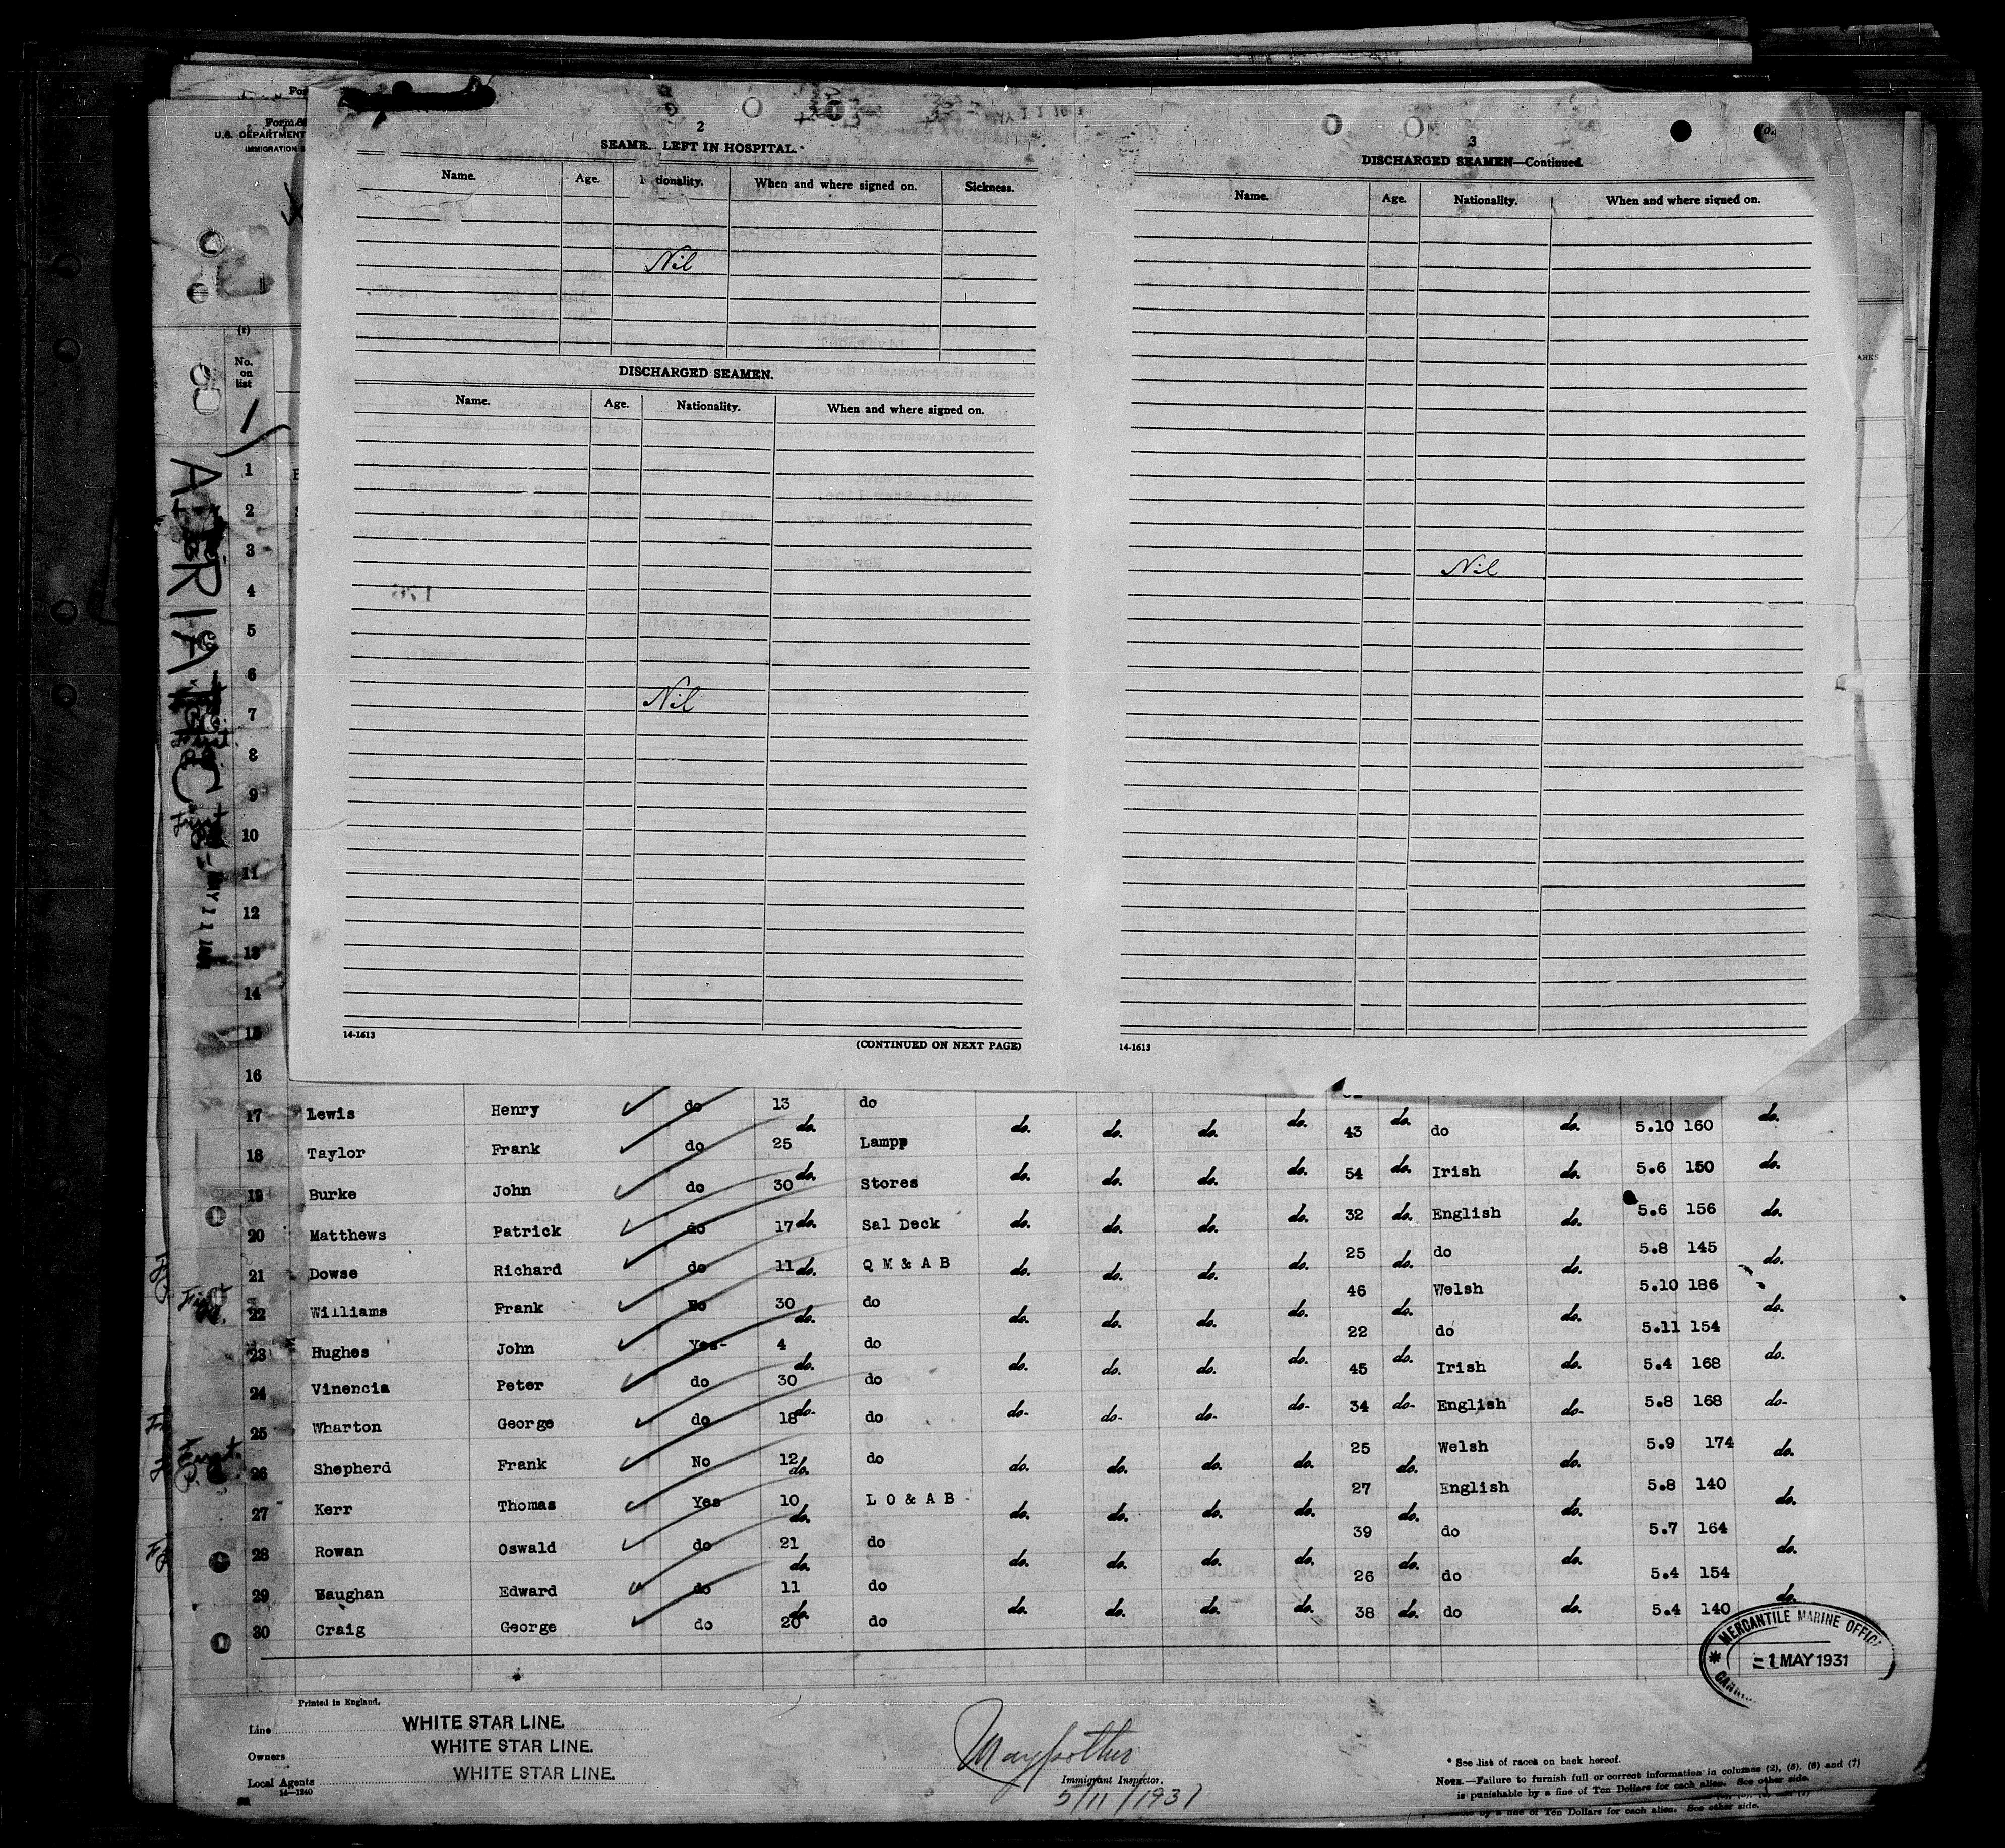 Form
U.S. DEPARTMENT
IMMIGRATION
2
SEAME LEFT IN HOSPITAL.
Name. Age. Nationality. When and where signed on. Sickness.
Nil
DISCHARGED SEAMEN.
Name. Age. Nationality. When and where signed on.
Nil
14-1613
(CONTINUED ON NEXT PAGE)
3
DISCHARGED SEAMEN—Continued.
Name. Age. Nationality. When and where signed on.
Nil
14-1613
(1)
No. on list
ADRIATIC
MAY 11
1
2
3
4
5
6
7
8
9
10
11
12
13
14
15
16
17 Lewis Henry do 13 do
18 Taylor Frank do 25 do. Lampp do. do. do. do. 43 do. do do. 5.10 160 do.
19 Burke John do 30 do. Stores do. do. do. do. 54 do. Irish do. 5.6 150 do.
20 Matthews Patrick do 17 do. Sal Deck do. do. do. do. 32 do. English do. 5.6 156 do.
21 Dowse Richard do 11 do. Q M & A B do. do. do. do. 25 do. do do. 5.8 145 do.
22 Williams Frank No 30 do do. do. do. do. 46 do. Welsh do. 5.10 186 do.
23 Hughes John Yes- 4 do. do do. do. do. do. 22 do. do do. 5.11 154 do.
24 Vinencia Peter do 30 do. do do. do. do. do. 45 Irish do. 5.4 168
25 Wharton George do 18 do- do do- do- do- do- 34 do- English do- 5.8 168 do-
26 Shepherd Frank No 12 do. do do. do. do. do. 25 do. Welsh do. 5.9 174 do.
27 Kerr Thomas Yes 10 do. L O & A B - do. do. do. do. 27 do. English do. 5.8 140 do.
28 Rowan Oswald do 21 do. do do. do. do. do. 39 do. do do. 5.7 164 do.
29 Vaughan Edward do 11 do. do do. do. do. do. 26 do. do do. 5.4 154 do.
30 Craig George do 20 do 38 do 5.4 140
MERCANTILE MARINE OFFIC
1 MAY 1931
Printed in England.
Line WHITE STAR LINE.
Owners WHITE STAR LINE.
Local Agents WHITE STAR LINE.
14-1240
Immigrant Inspector.
5/11/1931
* See list of races on back hereof.
NOTE.—Failure to furnish full or correct information in columns (2), (5), (6) and (7)
is punishable by a fine of Ten Dollars for each alien. See other side.
by a fine of Ten Dollars for each alien. See other side.